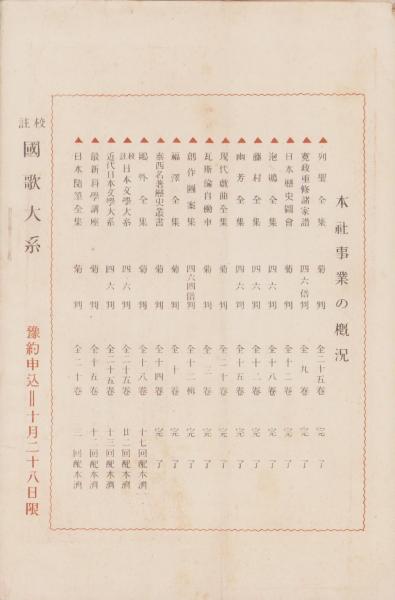 本社事業の概況
▲列聖全集 菊判 全二十五卷 完了
▲寛政重修諸家譜 四六倍判 全九卷 完了
▲日本歷史圖會 菊判 全十二卷 完了
▲泡鳴全集 四六判 全十八卷 完了
▲藤村全集 四六判 全十二卷 完了
▲幽芳全集 四六判 全十五卷 完了
▲現代戲曲全集 菊判 全二十卷 完了
▲瓦斯倫自働車 菊判 全三卷 完了
▲創作圖案集 四六四倍判 全十二輯 完了
▲福澤全集 菊判 全十卷 完了
▲泰西名著歷史叢書 菊判 全十四卷 完了
▲鷗外全集 菊判 全十八卷 十七回配本濟
▲校註日本文學大系 四六判 全二十五卷 廿二回配本濟
▲近代日本文學大系 四六判 全二十五卷 十三回配本濟
▲最新科學講座 菊判 全十五卷 十二回配本濟
▲日本隨筆全集 菊判 全二十卷 三回配本濟
校註 國歌大系 豫約申込＝十月二十八日限